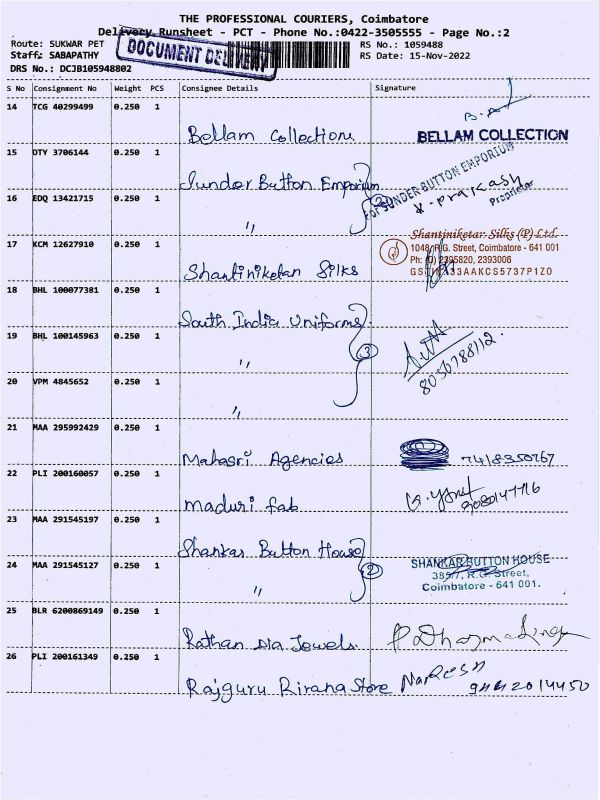 THE PROFESSIONAL COURIERS, Coimbatore
Delivery Runsheet - PCT - Phone No.:0422-3505555 - Page No.:2
Route: SUKWAR PET RS No.: 1059488
Staff: SABAPATHY DOCUMENT DELIVERY RS Date: 15-Nov-2022
DRS No.: DCJB105948802
S No Consignment No Weight PCS Consignee Details Signature
14 TCG 40299499 0.250 1
Bellam Collections BELLAM COLLECTION
15 OTY 3706144 0.250 1
Sunder Button Emporium FOR SUNDER BUTTON EMPORIUM
16 EDQ 13421715 0.250 1
" 2 Prakash Proprietor
17 KCM 12627910 0.250 1
Shantiniketan Silks
Shantiniketan Silks (P) Ltd.
1048, R.G. Street, Coimbatore - 641 001
2395820, 2393006
33AAKCS5737P1Z0
18 BHL 100077381 0.250 1
South India Uniforms
19 BHL 100145963 0.250 1
" 3 8056788112
20 VPM 4845652 0.250 1
"
21 MAA 295992429 0.250 1
Mahasri Agencies 7418350767
22 PLI 200160057 0.250 1
Maduri fab
23 MAA 291545197 0.250 1
Shankar Button House
24 MAA 291545127 0.250 1
" 2
SHANKAR BUTTON HOUSE
R.G. Street,
Coimbatore - 641 001.
25 BLR 6200869149 0.250 1
Rathan Jewels
26 PLI 200161349 0.250 1
Rajguru Kirana Store Naresh 9442014450